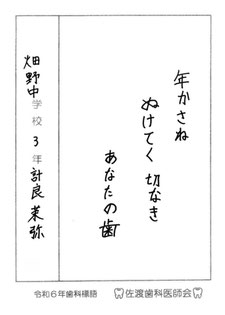 年かさね
ぬけてく 切なき
あなたの歯
畑野中学校 3年 計良茉弥
令和6年歯科標語
佐渡歯科医師会